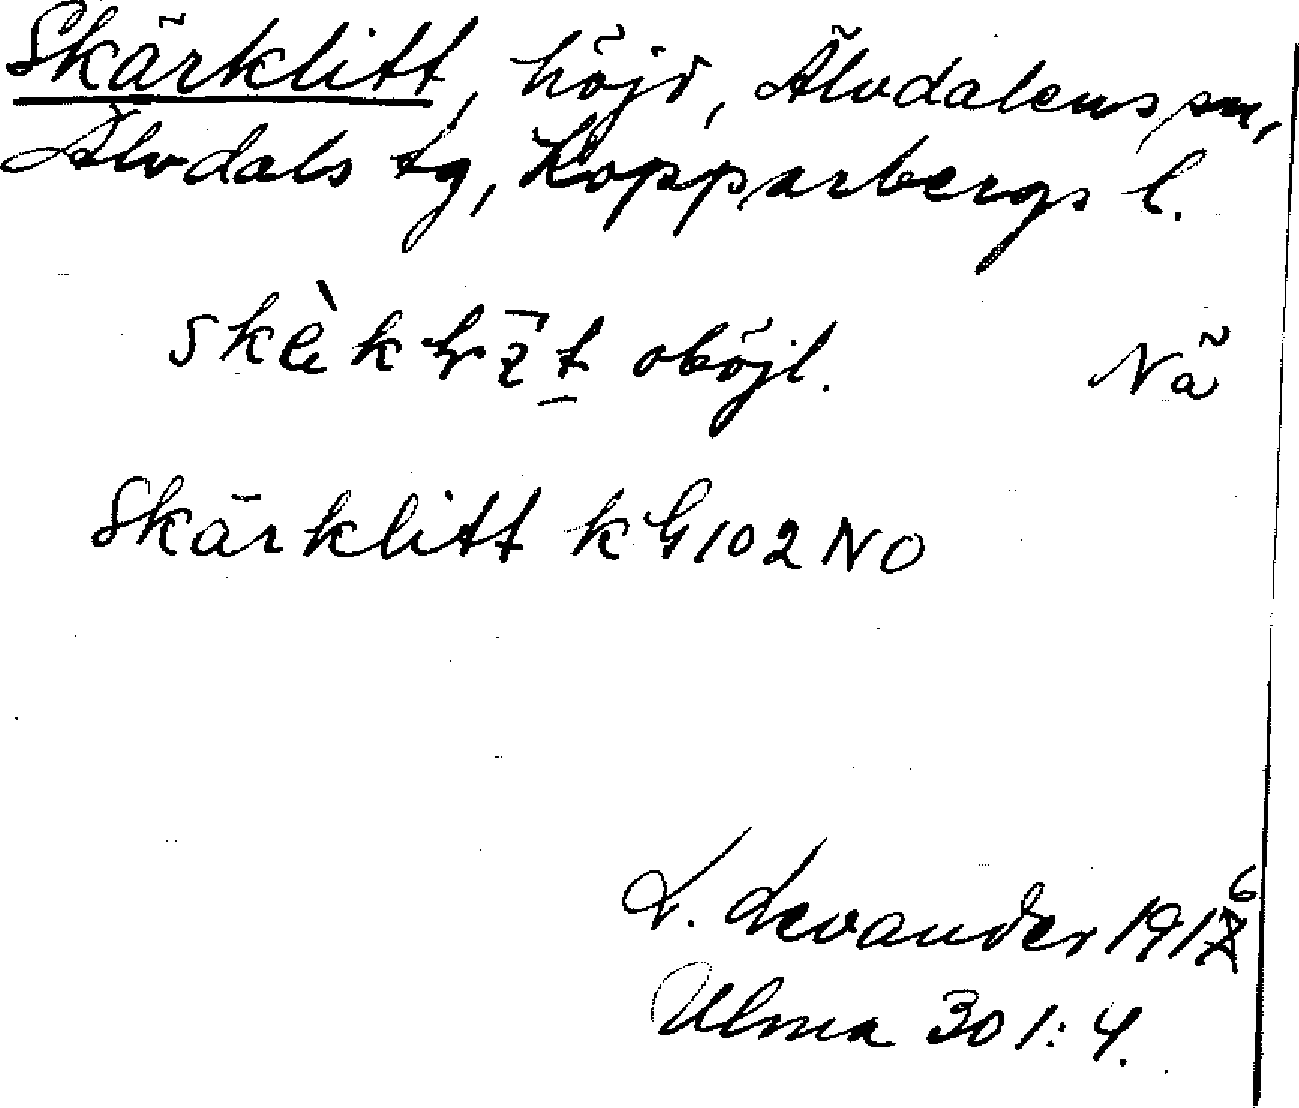 Skärklitt, höjd, Älvdalens sn,
Älvdals tg, Kopparbergs l.
oböjl. Nä
Skärklitt k G 102 NO
L. Levander 1916
Ulma 301:4.